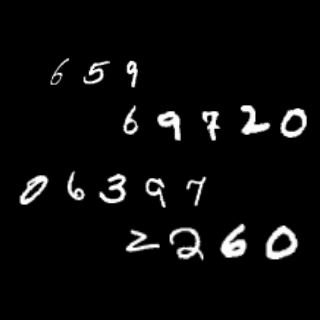 659
69720
06397
2260